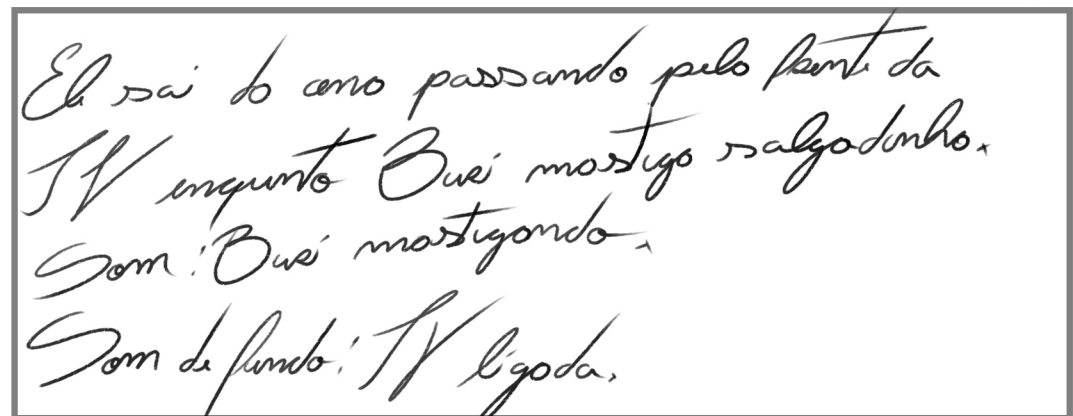 Ele sai do cano passando pela frente da
TV enquanto Buzi mastiga salgadinho.
Som: Buzi mastigando.
Som de fundo: TV ligada.